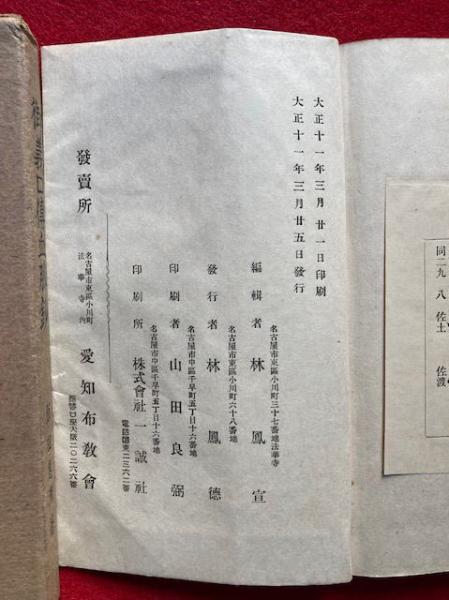 大正十一年三月廿一日印刷
大正十一年三月廿五日發行
名古屋市東區小川町三十七番地法華寺
編輯者 林鳳宣
名古屋市東區小川町六十八番地
發行者 林鳳德
名古屋市中區千早町五丁目十六番地
印刷者 山田良弼
名古屋市中區千早町五丁目十六番地
印刷所 株式會社一誠社
電話東一三六二番
發賣所
名古屋市東區小川町
法華寺內
愛知布敎會
振替口座大阪二〇二六六番
同二九
八 佐土
佐渡